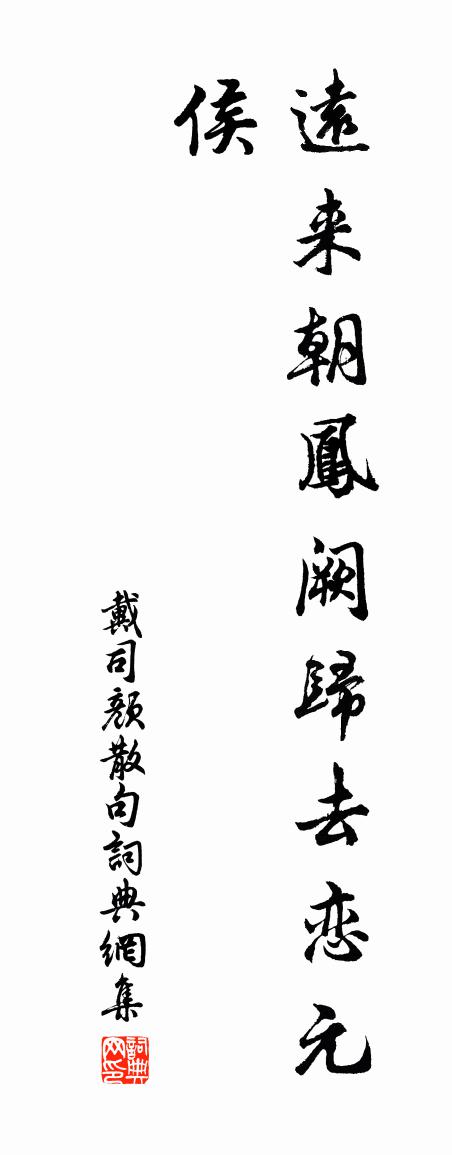 遠来朝鳳闕歸去恋元
侯
戴司顔散句詞典網集
詞典网印